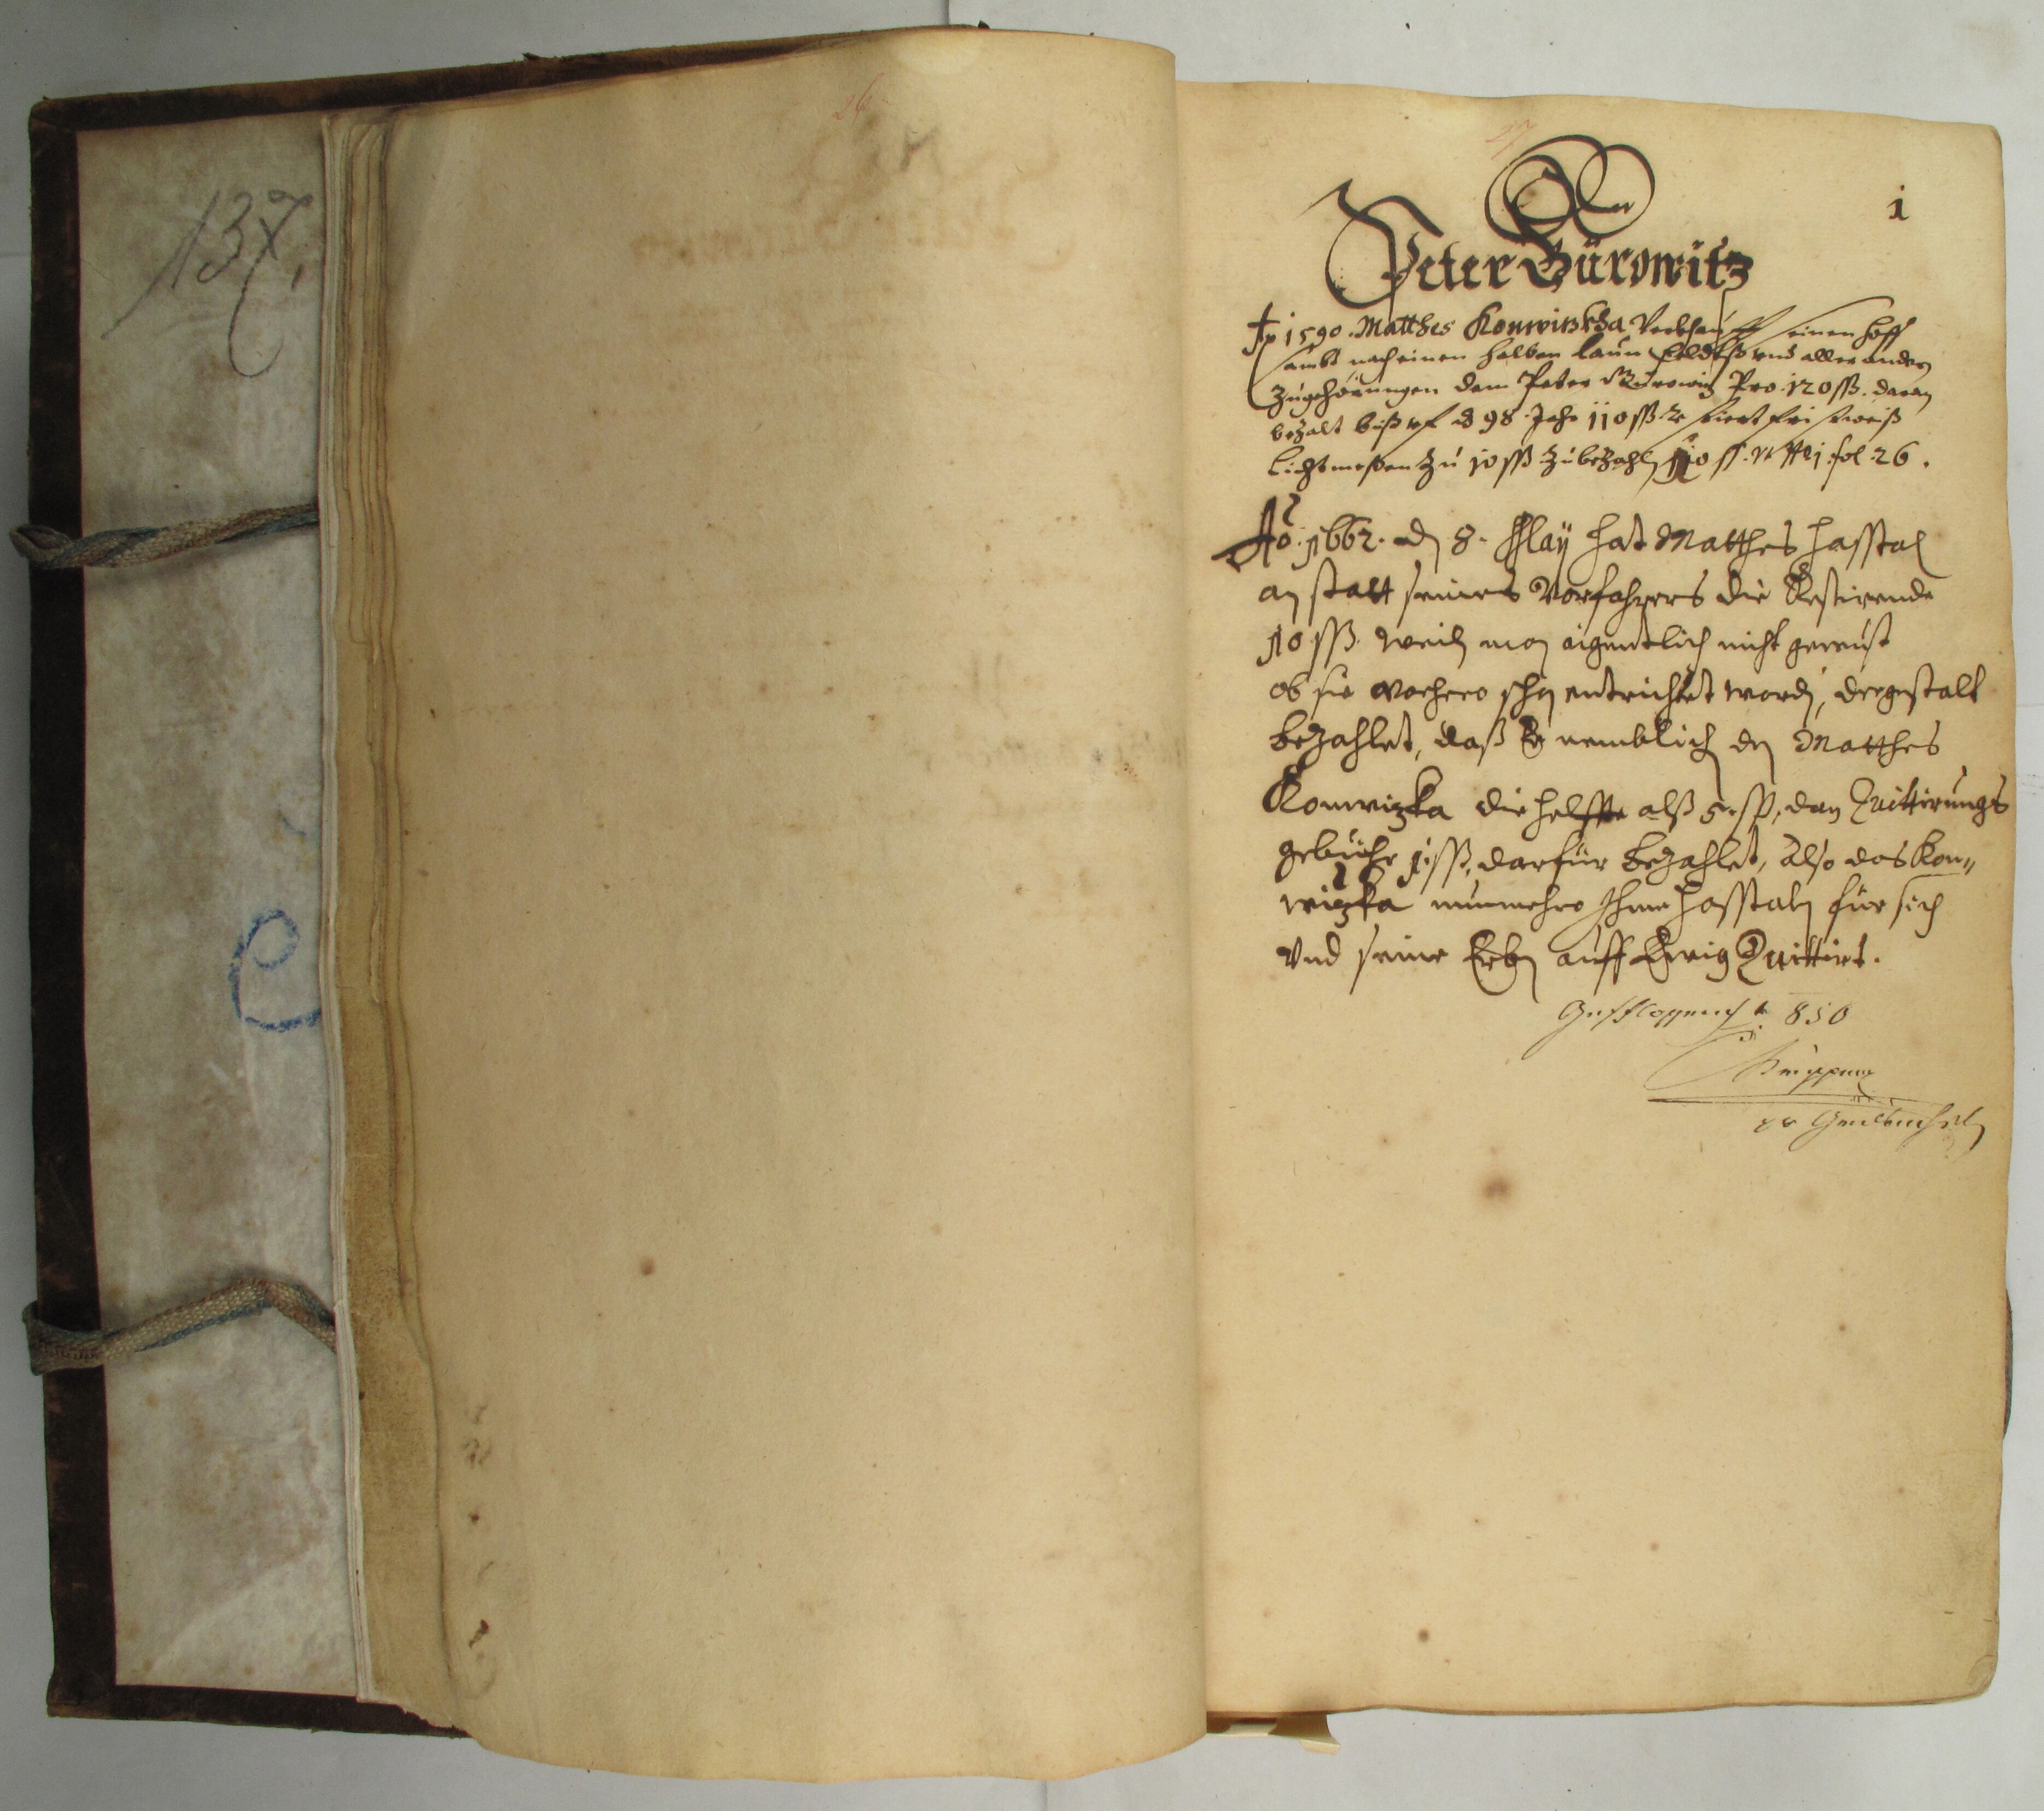 137,
26
27
1
Peter Bürowitz
1590. Matthes Konwitzka Verkhaufft seinen hoff
sambt nach einen halben Laün feldtß vnd aller ander
Zugehörungen dem Peter Bürowitz Pro 120 ßß. daran
bezalt biß vf d 98 Jahr 110 ßß
Lichtmeßen zu 10 ßß zubezahln 110 ßß fol. 26.
Ao. 1662. dn 8. May hat Matthes Hasstal
an statt seines Vorfahrers die Restirende
10 ßß. weiln man aigentlich nicht gewust
ob sie vorhero schon entrichtet wordn, dergestalt
bezahlet, daß Er nemblich dn Matthes
Konwizka die helffte alß 5. ßß, dan Quittirungs
gebühr 1 ßß, darfür bezahlet, Also das Kon„
wizka nunmehro Ihme Hasstaln für sich
Vnd seine Erbn auff Ewig Quittirt.
850